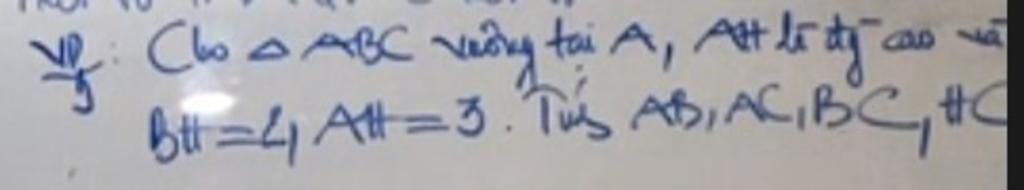 VD5: Cho △ ABC vuông tại A, AH là đg cao và
BH = 4, AH = 3. Tính AB, AC, BC, HC